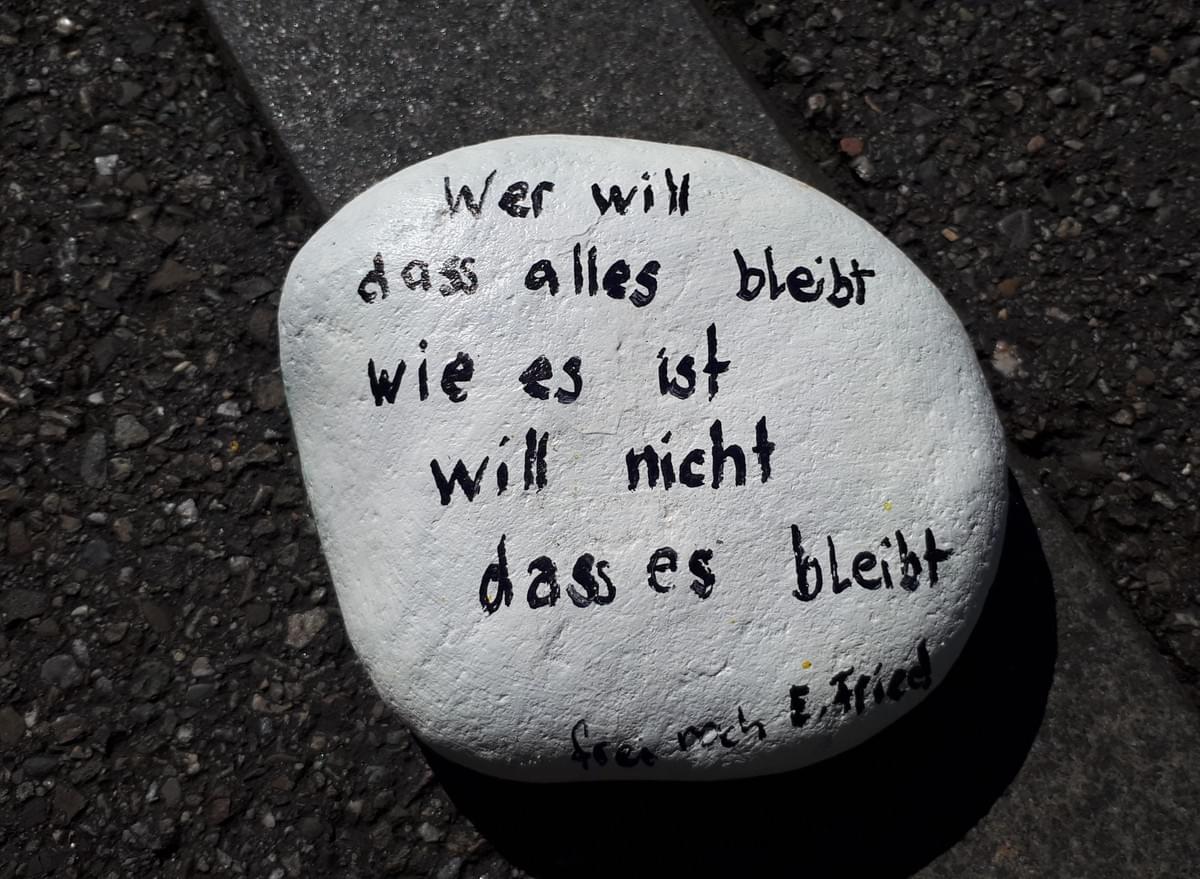 Wer will
dass alles bleibt
wie es ist
will nicht
dass es bleibt
frei nach E. Fried